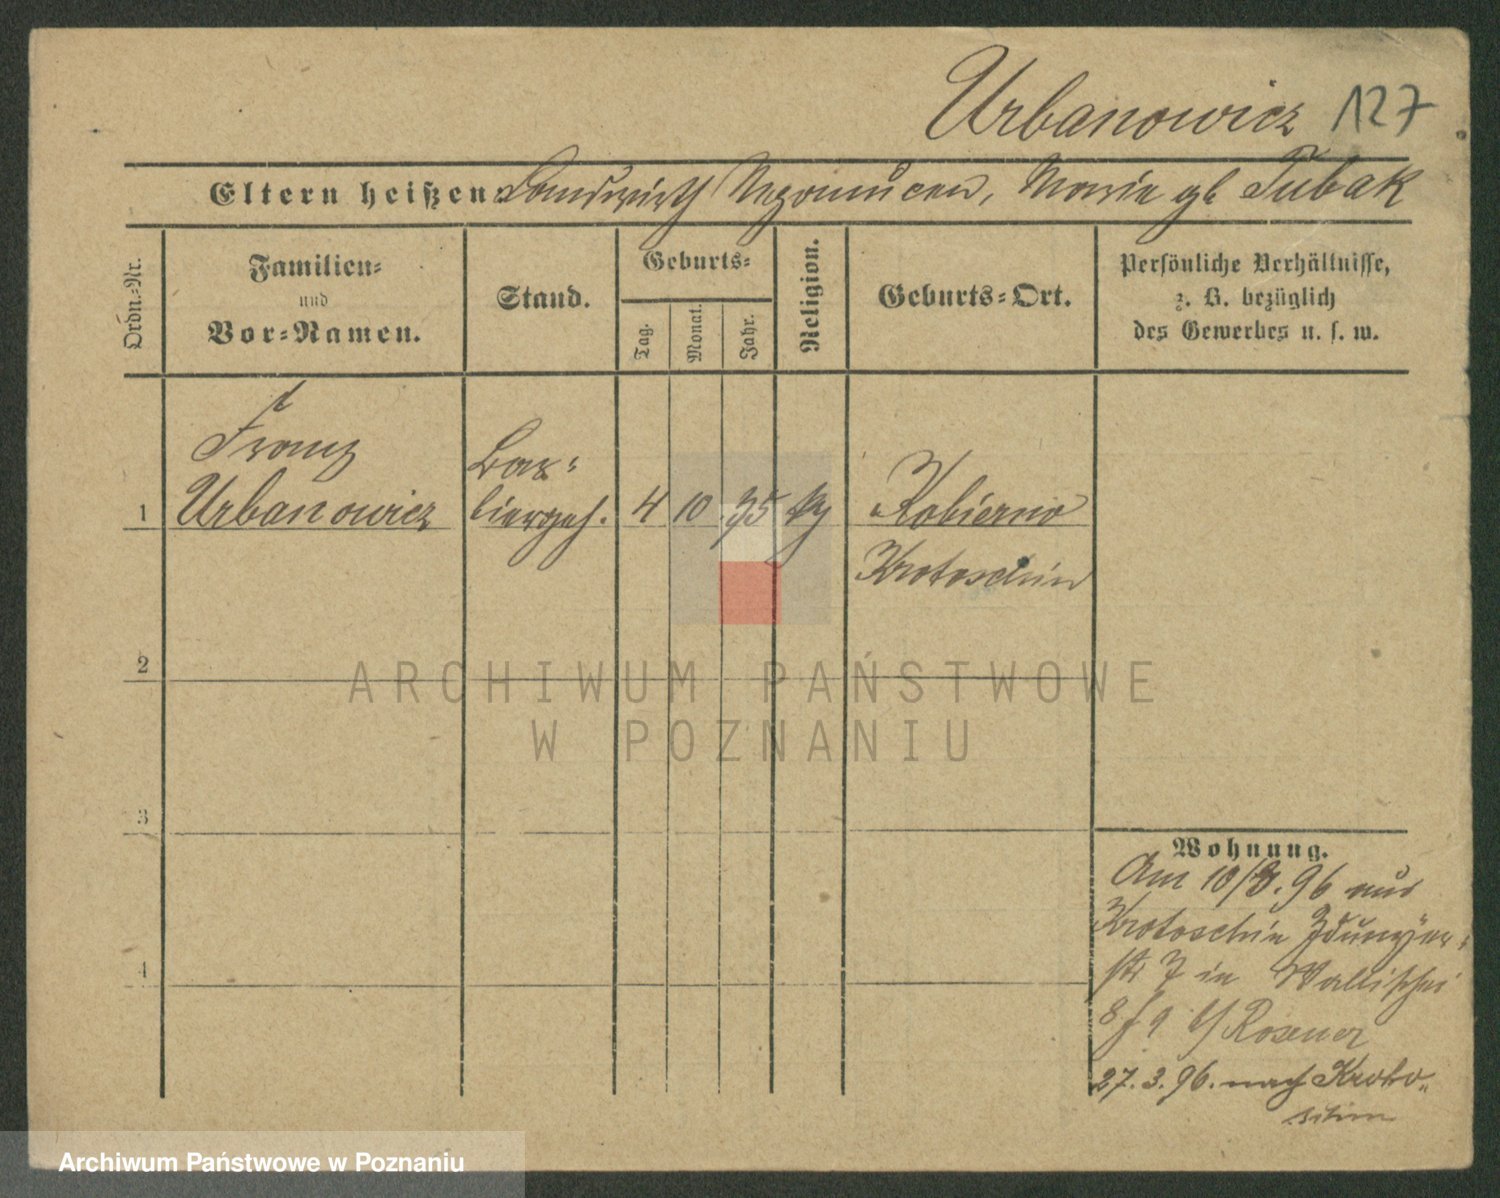 Urbanowicz 127
Eltern heißen: Landwirth Nepomucen, Marie gb Tubak
Ordn.-Nr.
Familien-
und
Vor-Namen.
Stand.
Geburts-
Tag.
Monat.
Jahr.
Religion.
Geburts-Ort.
Persönliche Verhältnisse,
z. B. bezüglich
des Gewerbes u. s. w.
Franz
Urbanowicz
Bar-
biergeh.
1
4
10
75
Kobierno
Krotoschin
2
3
4
Wohnung.
Am 10/3.96 aus
Krotoschin Zdunyer-
str 7 in Wallischei
8/9 b/ Rosener
27.3.96. nach Kroto-
schin
ARCHIWUM PAŃSTWOWE
W POZNANIU
Archiwum Państwowe w Poznaniu